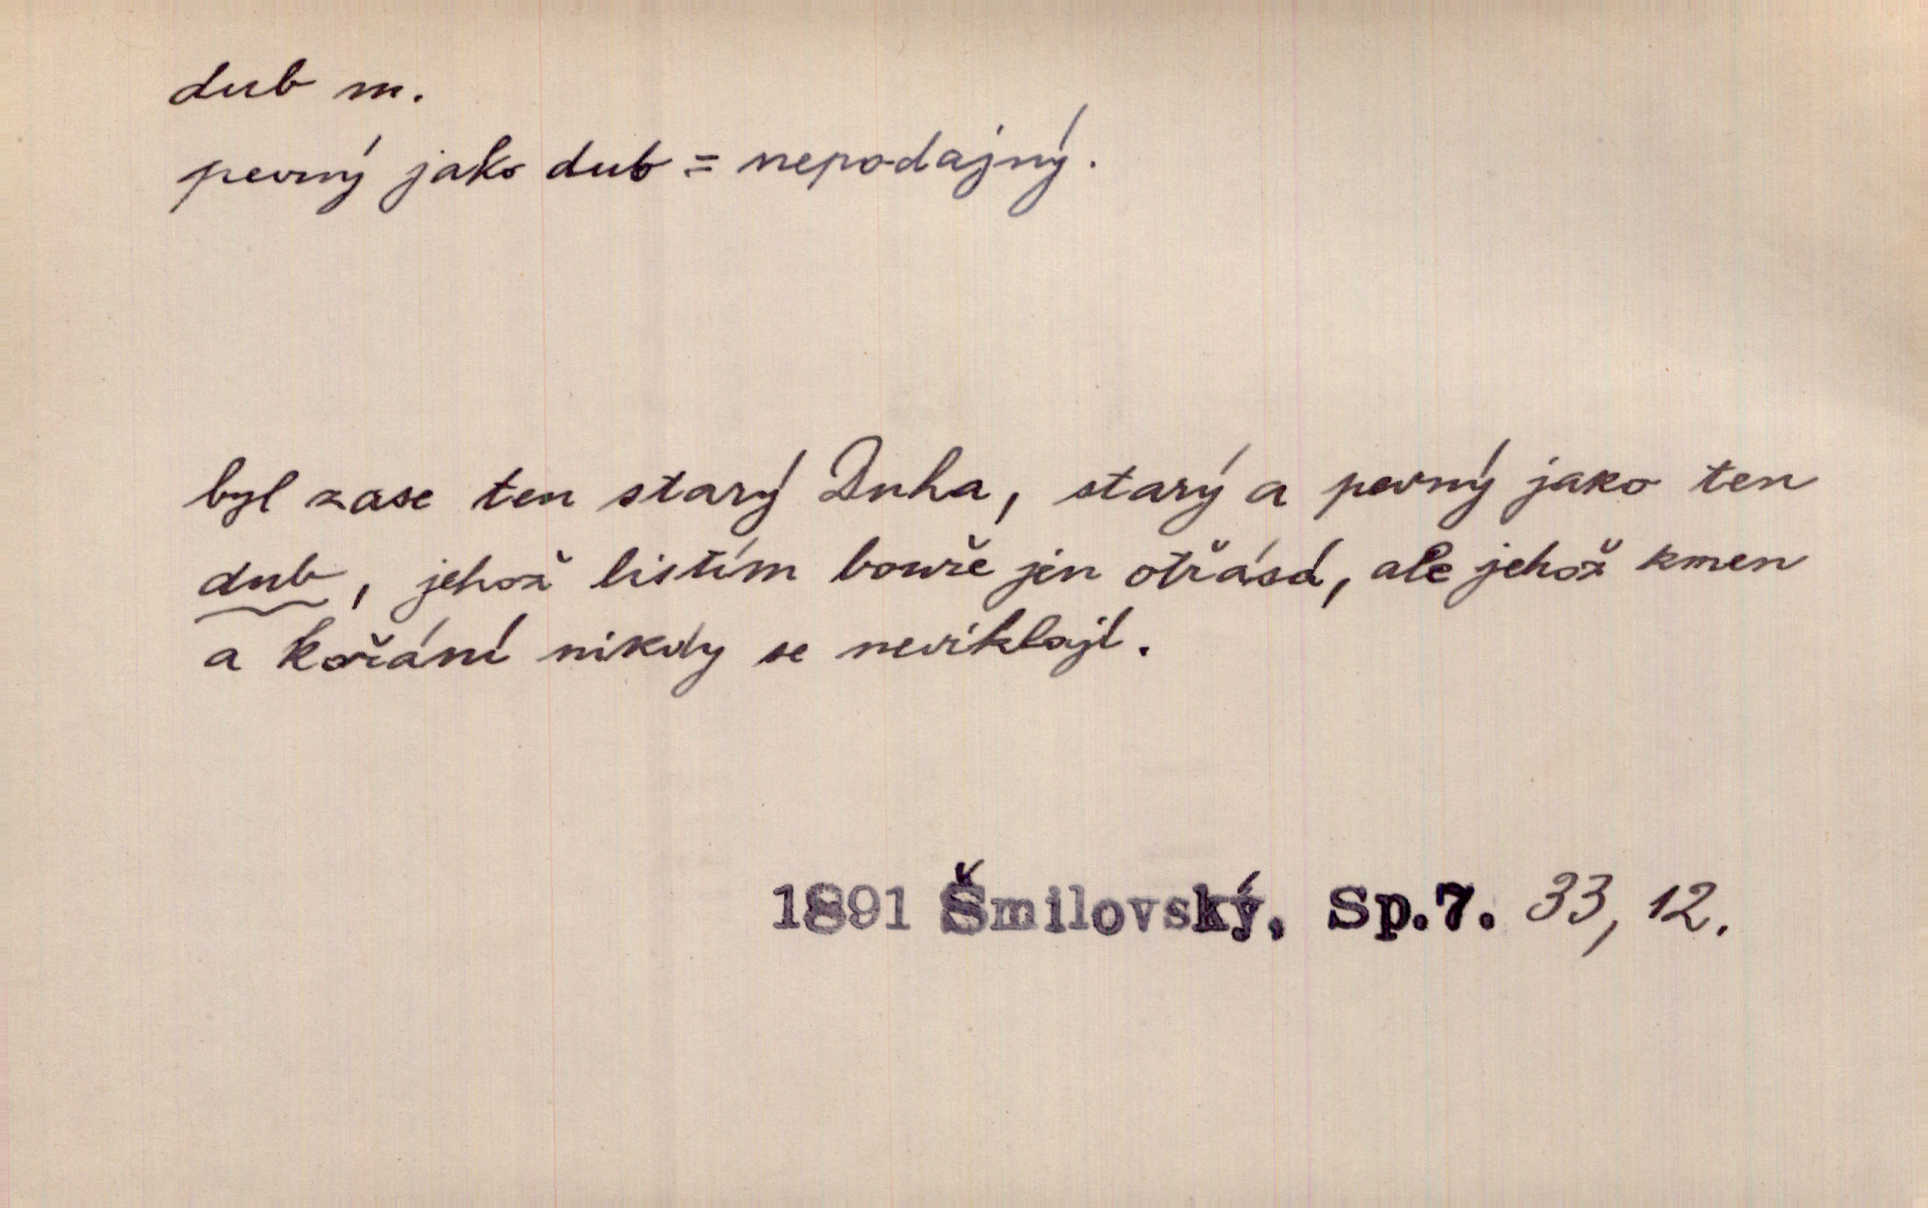 dub m.
pevný jako dub = nepodajný.
byl zase ten starý Duha, starý a pevný jako ten
dub, jehož listím bouře jen otřásá, ale jehož kmen
a kořání nikdy se neviklají.
1891 Šmilovský, Sp.7. 33, 12.